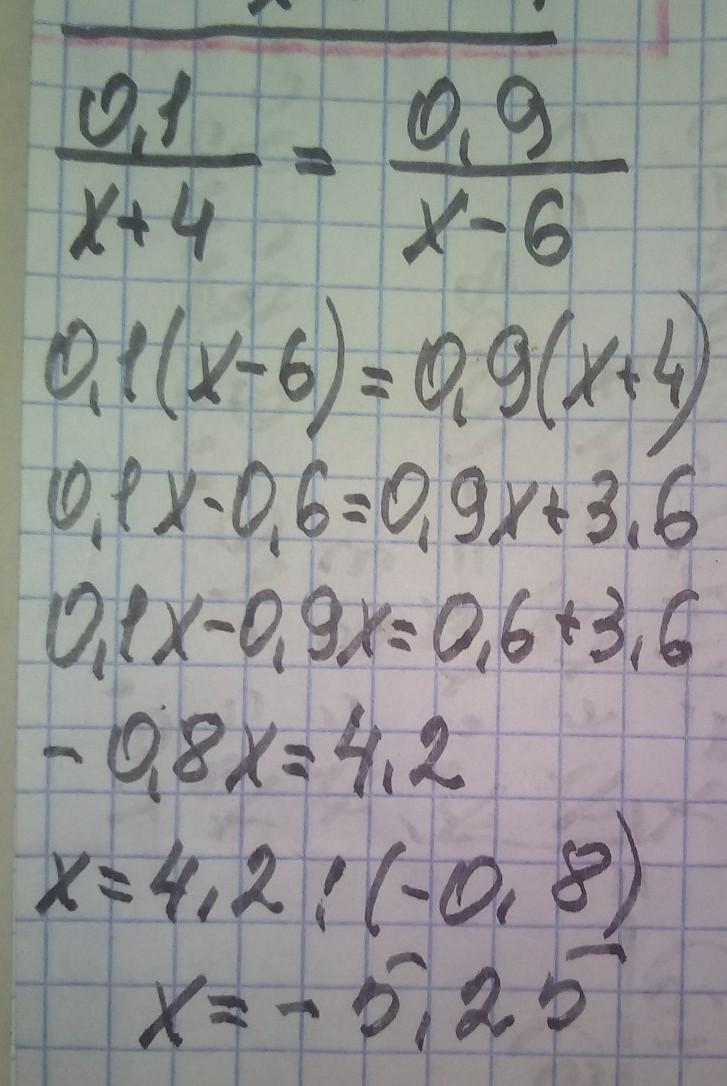 0,1/x+4 = 0,9/x-6
0,1(x-6)=0,9(x+4)
0,1x-0,6=0,9x+3,6
0,1x-0,9x=0,6+3,6
-0,8x=4,2
x=4,2:(-0,8)
x=-5,25